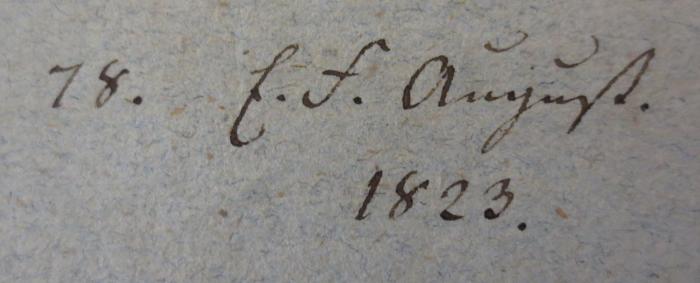 78. E. F. August.
1823.